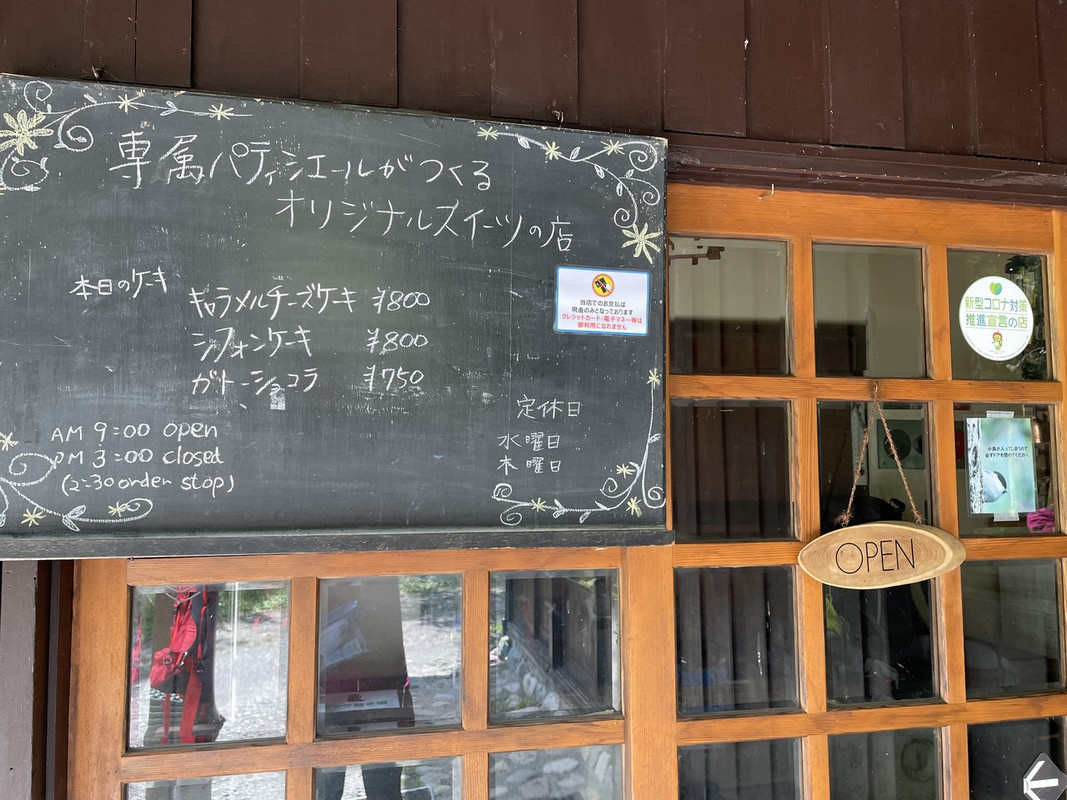 専属パティシエールがつくる
オリジナルスイーツの店
本日のケーキ
キャラメルチーズケーキ ¥800
シフォンケーキ ¥800
ガトーショコラ ¥750
AM 9:00 open
PM 3:00 closed
(2:30 order stop)
定休日
水曜日
木曜日
当店でのお支払は
現金のみとなっております
クレジットカード・電子マネー等は
御利用になれません
新型コロナ対策
推進宣言の店
小鳥が入ってしまうので
必ずドアを閉めてください。
OPEN